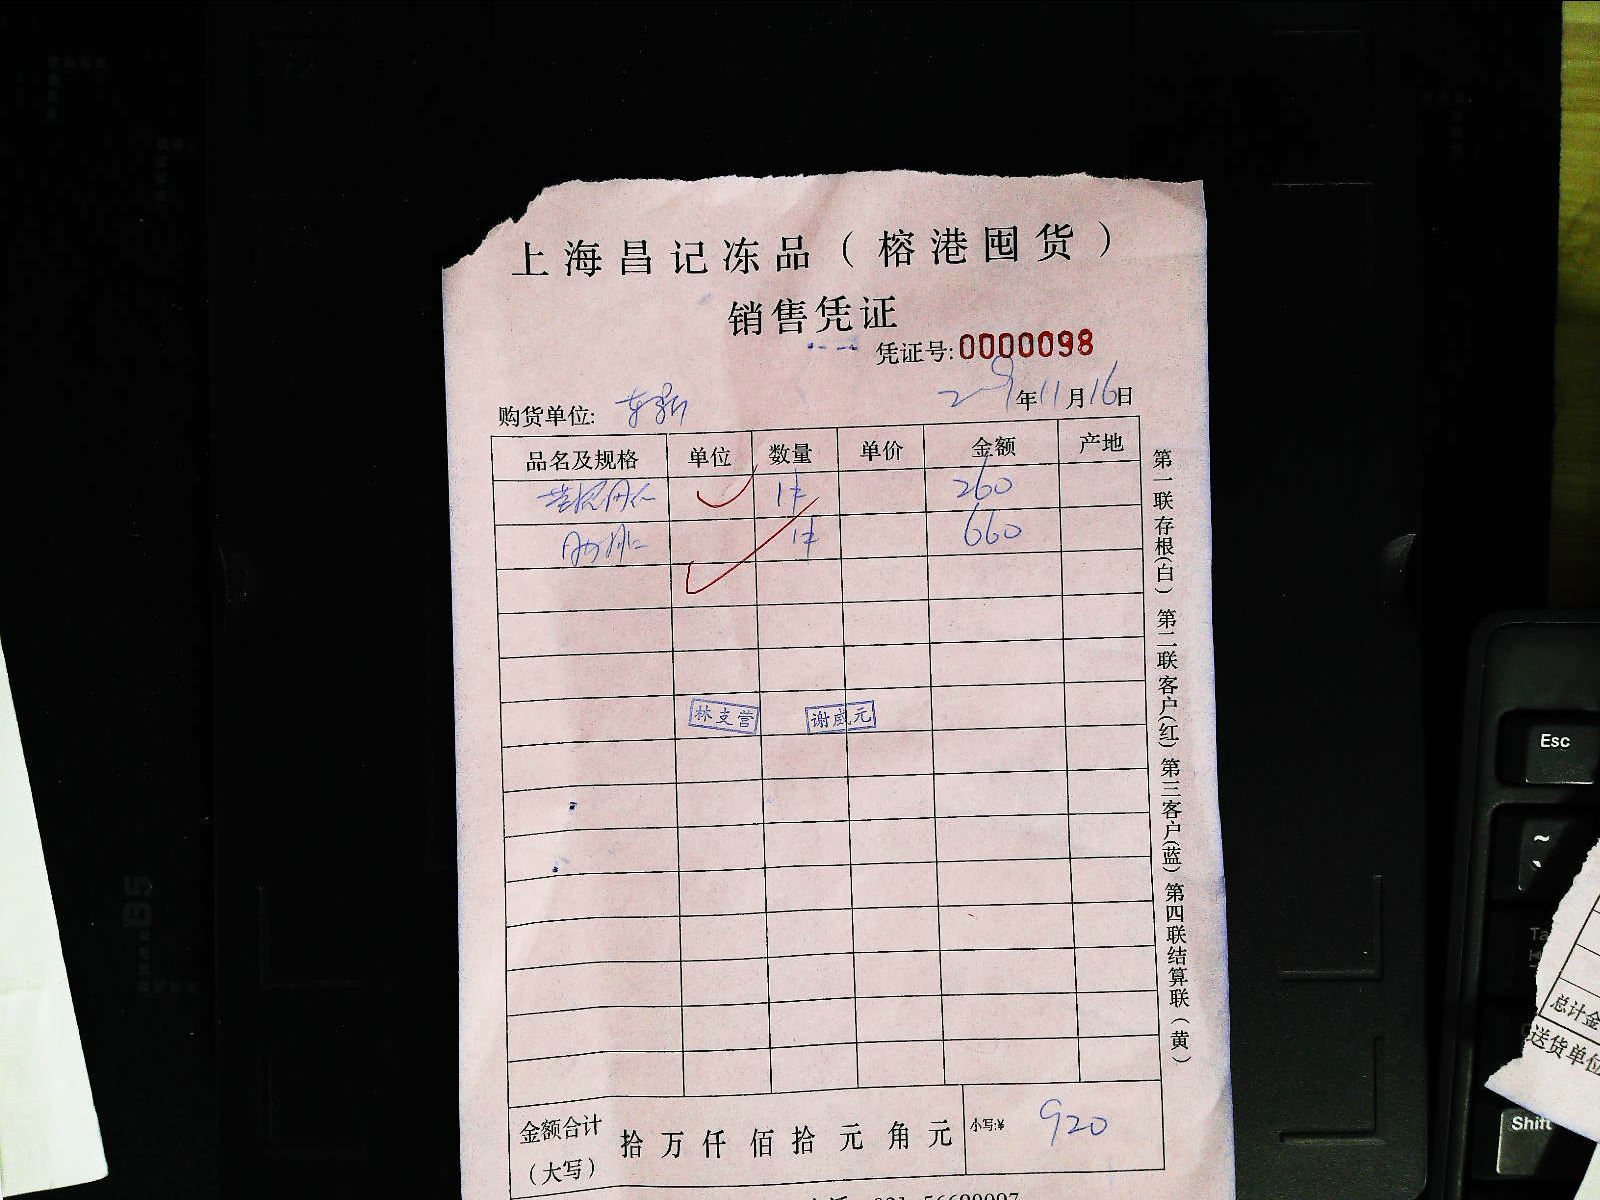 上海昌记冻品（榕港囤货）
销售凭证
凭证号:0000098
购货单位: 年11月16日
品名及规格 单位 数量 单价 金额 产地
1件 260
1件 660
林支营 谢威元
金额合计（大写） 拾万仟佰拾元角元 小写:¥ 920
第一联存根(白) 第二联客户(红) 第三客户(蓝) 第四联结算联(黄)
B5
Esc
~
`
Shift
总计金
送货单位